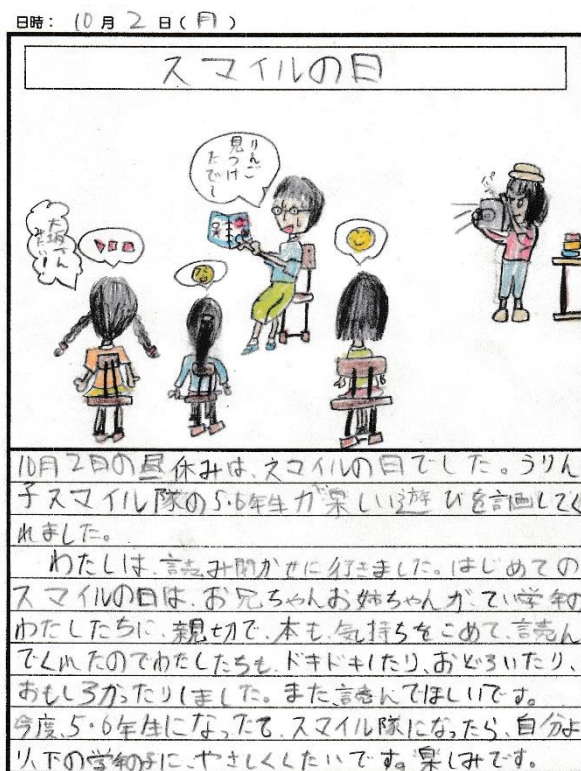 日時： 10月 2 日（月）
スマイルの日
りんご
見つけ
たで〜
10月2日の昼休みは、スマイルの日でした。うりん
子スマイル隊の5・6年生が楽しい遊びを計画してく
れました。
わたしは、読み聞かせに行きました。はじめての
スマイルの日は、お兄ちゃんお姉ちゃんが、てい学年の
わたしたちに、親切で、本も、気持ちをこめて、読ん
でくれたのでわたしたちも、ドキドキしたり、おどろいたり、
おもしろかったりしました。また、読んでほしいです。
今度、5・6年生になったて、スマイル隊になったら、自分よ
り、下の学年の子に、やさしくしたいです。楽しみです。